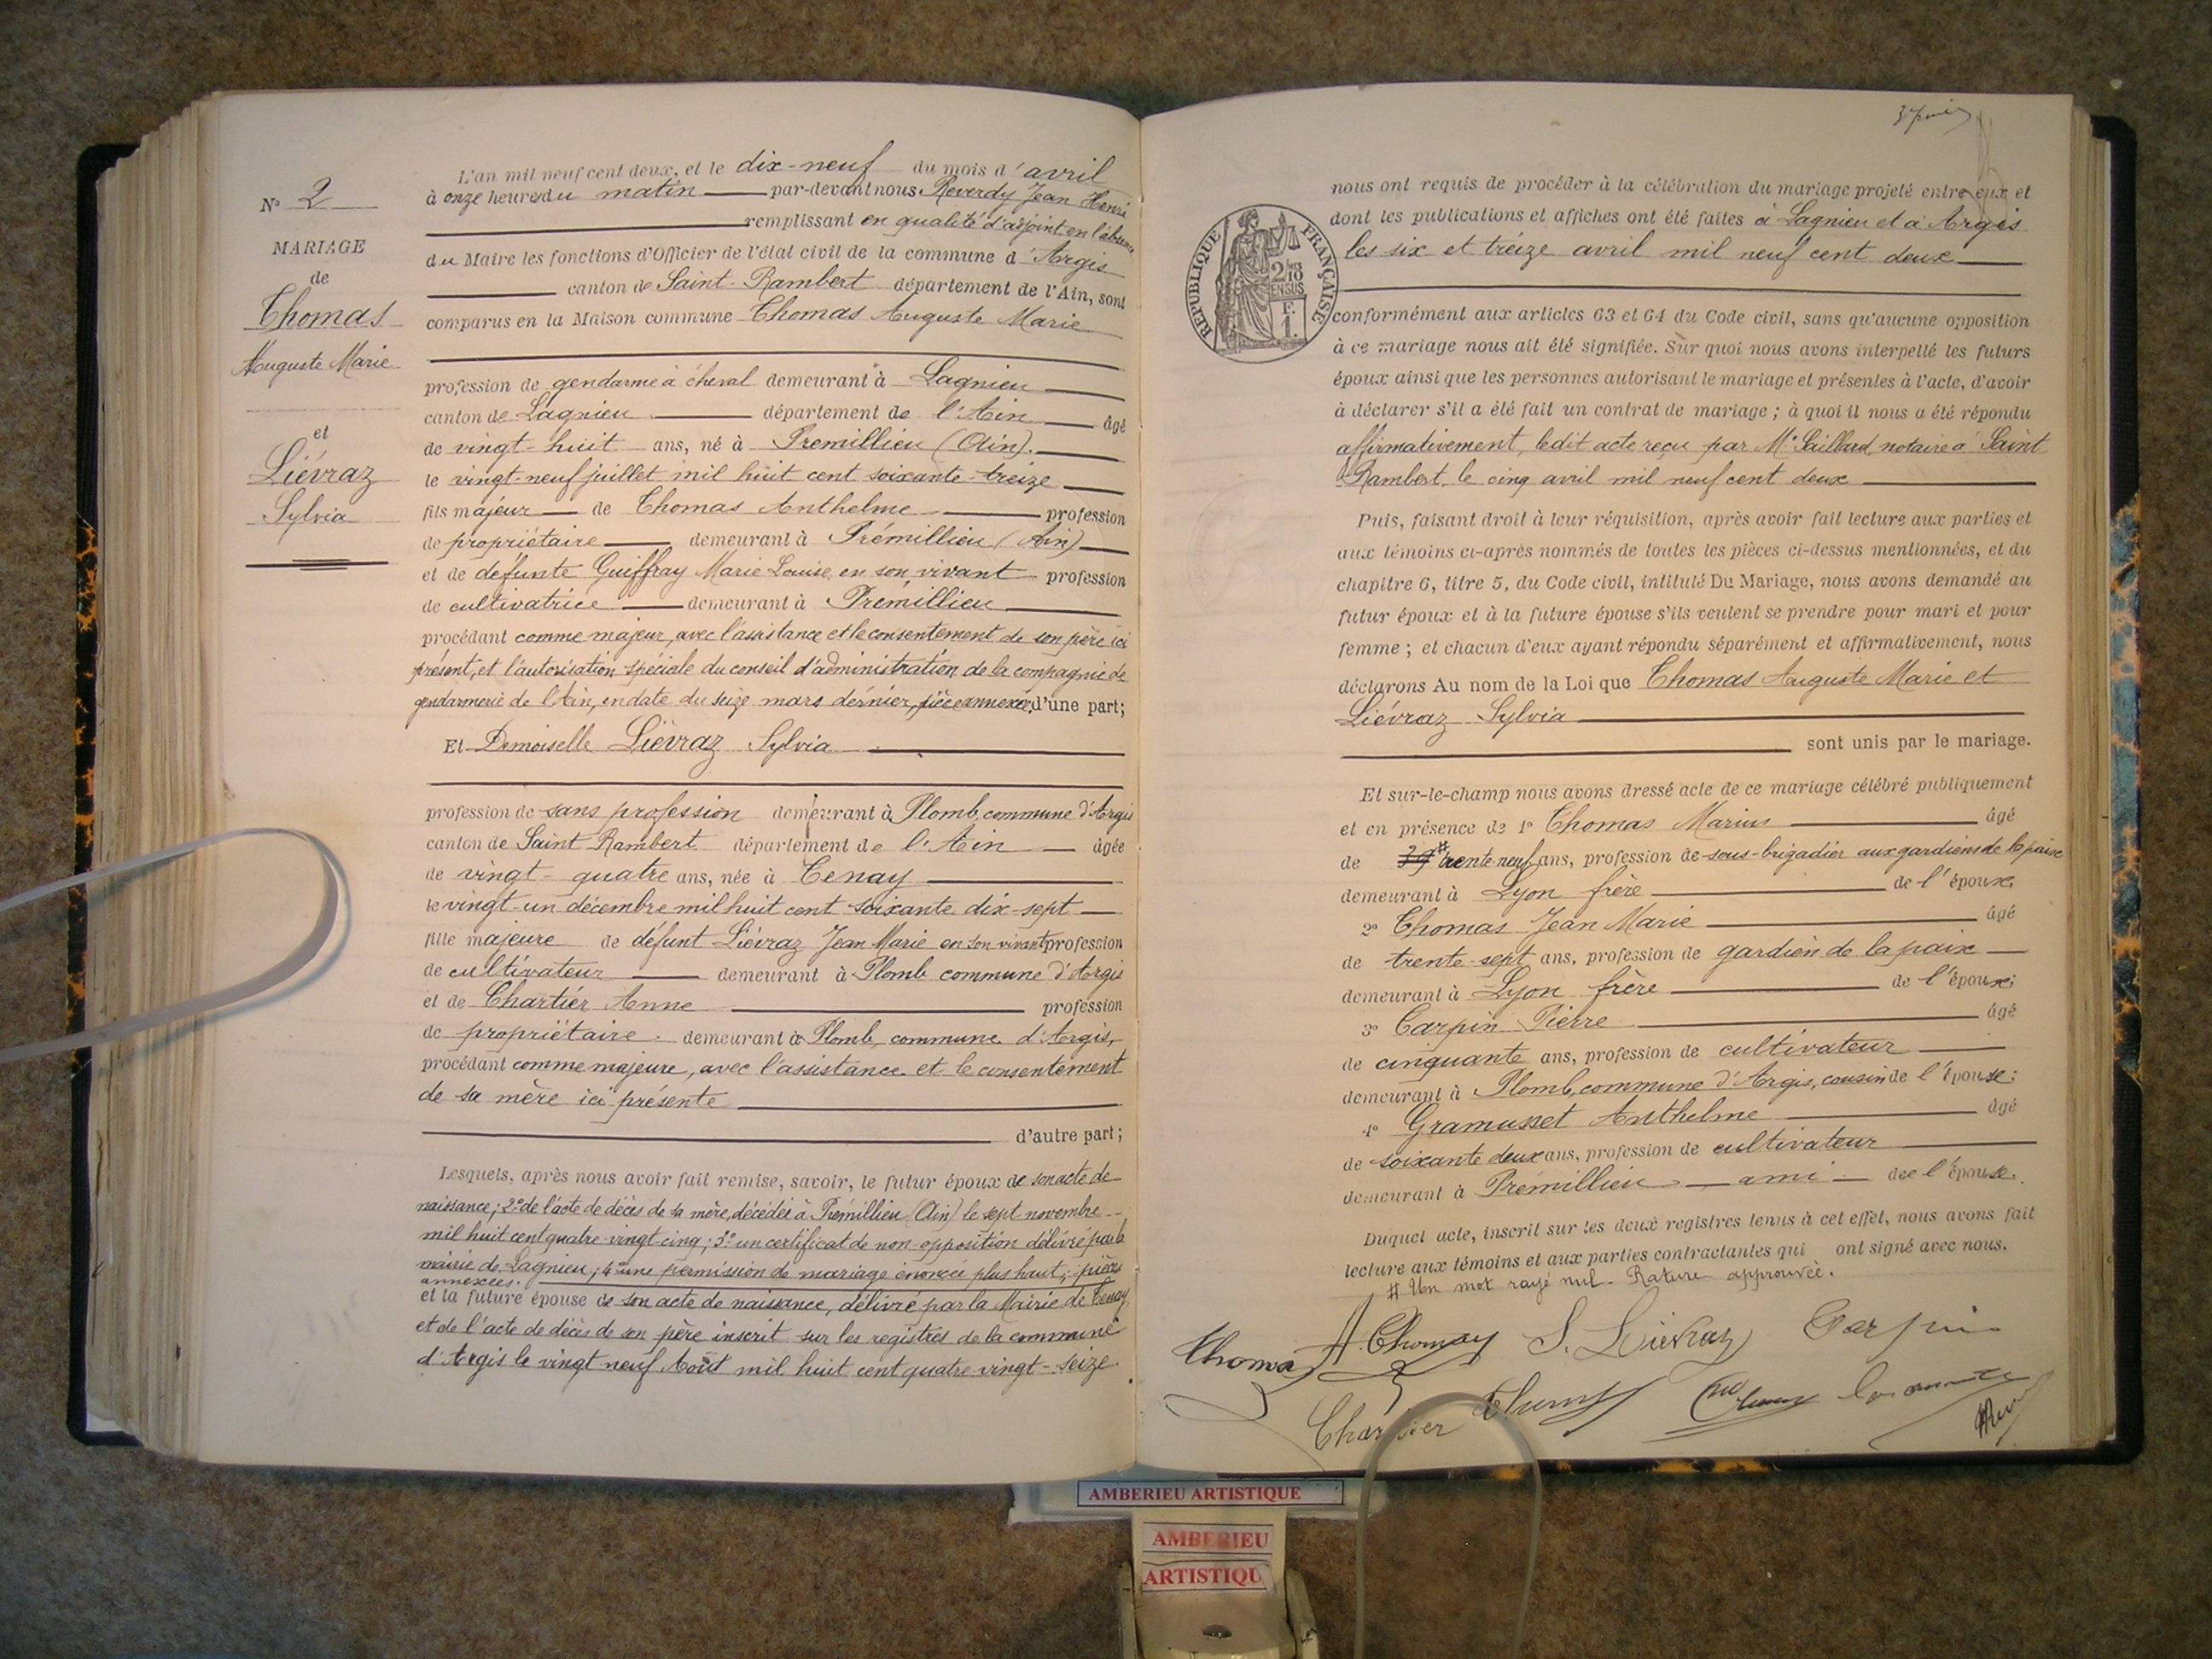 N° 2
MARIAGE
de
Thomas
Auguste Marie
et
Liévraz
Sylvia
L'an mil neuf cent deux, et le dix-neuf du mois d'avril
à onze heures du matin par-devant nous Reverdy Jean Henri
remplissant en qualité d'adjoint en l'absence
du Maire les fonctions d'Officier de l'état civil de la commune d'Argis
canton de Saint-Rambert département de l'Ain, sont
comparus en la Maison commune Thomas Auguste Marie
profession de gendarme à cheval demeurant à Lagnieu
canton de Lagnieu département de l'Ain âgé
de vingt-huit ans, né à Premillieu (Ain).
le vingt-neuf juillet mil huit cent soixante-treize
fils majeur de Thomas Anthelme profession
de propriétaire demeurant à Prémillieu (Ain)
et de défunte Guiffray Marie Louise, en son vivant profession
de cultivatrice demeurant à Premillieu
procédant comme majeur, avec l'assistance et le consentement de son père ici
présent, et l'autorisation spéciale du conseil d'administration de la compagnie de
gendarmerie de l'Ain, en date du seize mars dernier, pièce annexée, d'une part;
Et Demoiselle Liévraz Sylvia
profession de sans profession demeurant à Plomb, commune d'Argis
canton de Saint Rambert département de l'Ain âgée
de vingt-quatre ans, née à Tenay
le vingt-un décembre mil huit cent soixante dix-sept
fille majeure de défunt Liévraz Jean Marie en son vivant profession
de cultivateur demeurant à Plomb commune d'Argis
et de Chartier Anne profession
de propriétaire demeurant à Plomb, commune d'Argis,
procédant comme majeure, avec l'assistance et le consentement
de sa mère ici présente
d'autre part;
Lesquels, après nous avoir fait remise, savoir, le futur époux de son acte de
naissance; 2° de l'acte de décès de sa mère, décédée à Prémillieu (Ain) le sept novembre
mil huit cent quatre-vingt-cinq; 3° un certificat de non-opposition délivré par la
mairie de Lagnieu; 4° une permission de mariage énoncée plus haut; pièces
annexées.
et la future épouse de son acte de naissance, délivré par la Mairie de Tenay
et de l'acte de décès de son père inscrit sur les registres de la commune
d'Argis le vingt neuf Août mil huit cent quatre-vingt-seize.
nous ont requis de procéder à la célébration du mariage projeté entre eux et
dont les publications et affiches ont été faites à Lagnieu et à Argis
les six et treize avril mil neuf cent deux
RÉPUBLIQUE FRANÇAISE
conformément aux articles 63 et 64 du Code civil, sans qu'aucune opposition
à ce mariage nous ait été signifiée. Sur quoi nous avons interpellé les futurs
époux ainsi que les personnes autorisant le mariage et présentes à l'acte, d'avoir
à déclarer s'il a été fait un contrat de mariage; à quoi il nous a été répondu
affirmativement, ledit acte reçu par Me Saillard, notaire à Saint
Rambert, le cinq avril mil neuf cent deux
Puis, faisant droit à leur réquisition, après avoir fait lecture aux parties et
aux témoins ci-après nommés de toutes les pièces ci-dessus mentionnées, et du
chapitre 6, titre 5, du Code civil, intitulé Du Mariage, nous avons demandé au
futur époux et à la future épouse s'ils veulent se prendre pour mari et pour
femme; et chacun d'eux ayant répondu séparément et affirmativement, nous
déclarons Au nom de la Loi que Thomas Auguste Marie et
Liévraz Sylvia
sont unis par le mariage.
Et sur-le-champ nous avons dressé acte de ce mariage célébré publiquement
et en présence de 1° Thomas Marius âgé
de 39 # trente neuf ans, profession de sous-brigadier aux gardiens de la paix
demeurant à Lyon frère de l'époux.
2° Thomas Jean Marie âgé
de trente-sept ans, profession de gardien de la paix
demeurant à Lyon frère de l'époux;
3° Carpin Pierre âgé
de cinquante ans, profession de cultivateur
demeurant à Plomb, commune d'Argis, cousin de l'épouse;
4° Gramusset Anthelme âgé
de soixante deux ans, profession de cultivateur
demeurant à Prémillieu ami de l'épouse.
Duquel acte, inscrit sur les deux registres tenus à cet effet, nous avons fait
lecture aux témoins et aux parties contractantes qui ont signé avec nous.
# Un mot rayé nul. Rature approuvée.
Thomas A. Thomas S. Lievraz Carpin
Chartier
AMBERIEU ARTISTIQUE
AMBERIEU
ARTISTIQU